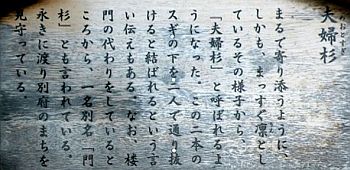 夫婦杉
めおとすぎ
まるで寄り添うように、
しかも、まっすぐ凛とし
ているその様子から、
「夫婦杉」と呼ばれるよ
うになった。この二本の
スギの下を二人で通り抜
けると結ばれるという言
い伝えもある。なお、楼
門の代わりをしていると
ころから、一名別名「門
杉」とも言われている。
永きに渡り別府のまちを
見守っている。